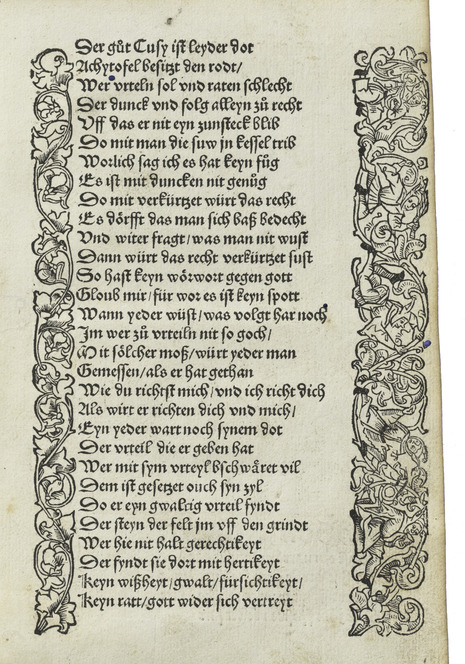 Der gůt Cusy ist leyder dot
Achytofel besitzt den rodt/
Wer vrteln sol vnd raten schlecht
Der dunck vnd folg alleyn zů recht
Vff das er nit eyn zunsteck blib
Do mit man die suw jn kessel trib
Worlich sag ich es hat keyn fůg
Es ist mit duncken nit genůg
Do mit verkürtzet würt das recht
Es dörfft das man sich baß bedecht
Vnd witer fragt/ was man nit wust
Dann würt das recht verkürtzet sust
So hast keyn wörwort gegen gott
Gloub mir/ für wor es ist keyn spott
Wann yeder wüst/ was volgt har noch
Im wer zů vrteiln nit so goch/
Mit sölcher moß/ würt yeder man
Gemessen/ als er hat gethan
Wie du richtst mich/ vnd ich richt dich
Als wirt er richten dich vnd mich/
Eyn yeder wart noch synem dot
Der vrteil die er geben hat
Wer mit sym vrteyl bschwäret vil
Dem ist gesetzet ouch syn zyl
Do er eyn gwaltig vrteil fyndt
Der steyn der felt jm vff den grindt
Wer hie nit halt gerechtikeyt
Der fyndt sie dort mit hertikeyt
Keyn wißheyt/ gwalt/ fürsichtikeyt/
Keyn ratt/ gott wider sich vertreyt